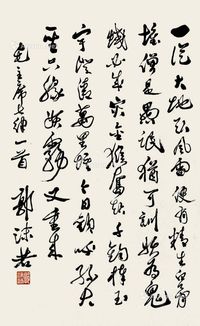 一從大地起風雷便有精生白骨
堆僧是愚氓猶可訓妖為鬼
蜮必成災金猴奮起千鈞棒玉
宇澄清萬里埃今日歡呼孫大
聖只緣妖霧又重來
毛主席七律一首 郭沫若